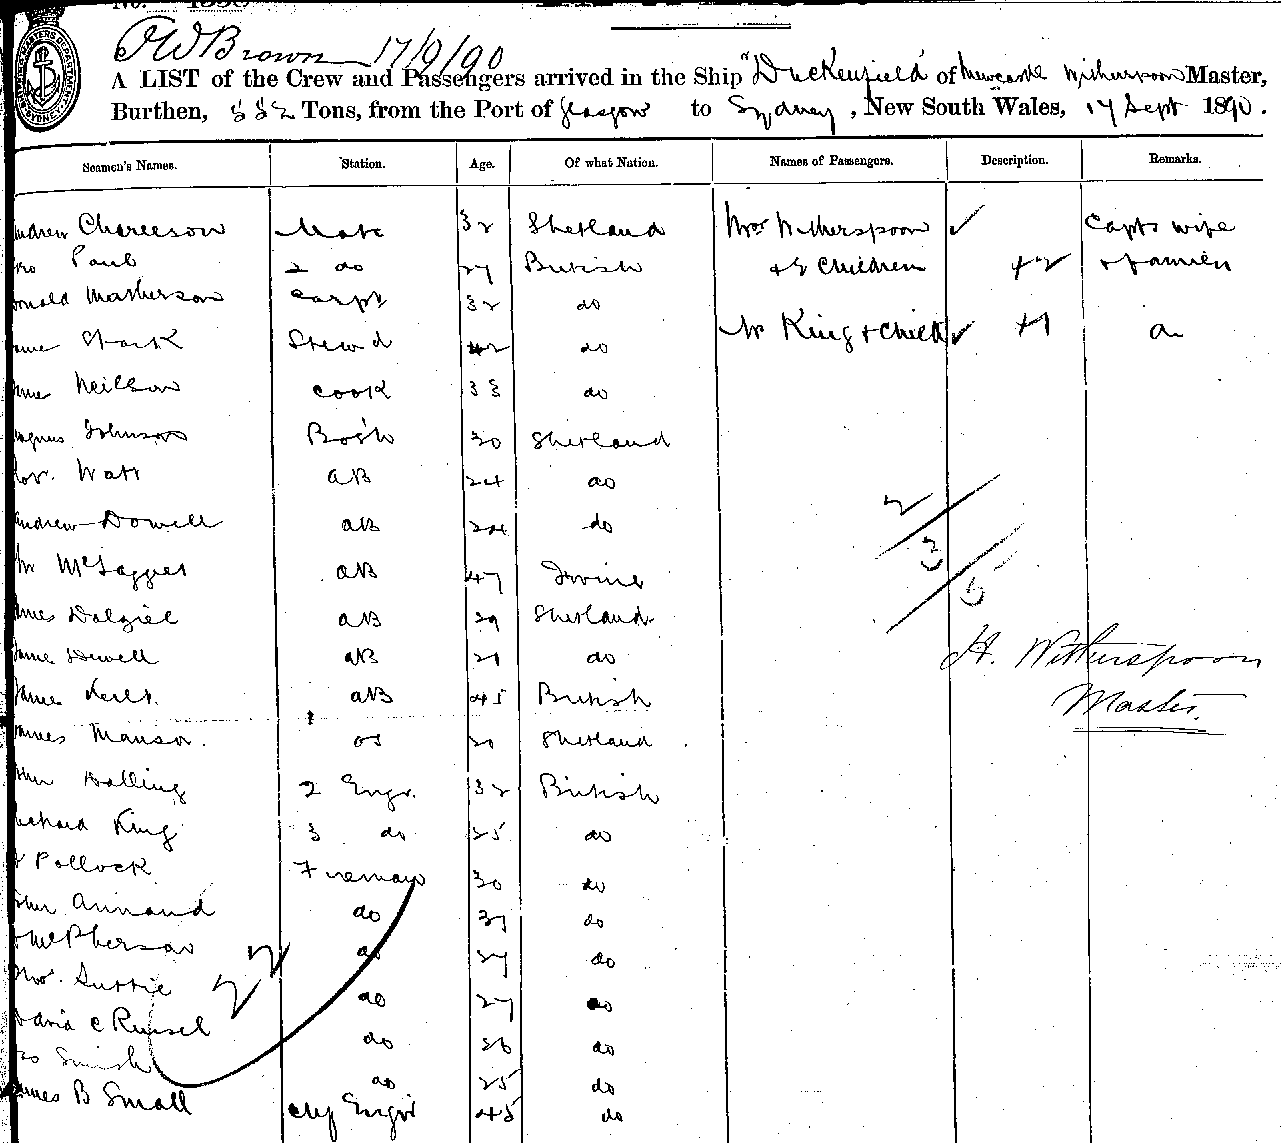 No. 4338
P W Brown 17/9/90
A LIST of the Crew and Passengers arrived in the Ship "Duckenfield" of Newcastle Witherspoon Master,
Burthen, Tons, from the Port of Glasgow to Sydney, New South Wales, 17 Sept 1890.
Seamen's Names. Station. Age. Of what Nation. Names of Passengers. Description. Remarks.
ndrew Mate 32 Shetland Mrs Witherspoon ✓ Capts wife
Paub 2 do 27 British Children +2
onald Matherson Carpt 32 do
Stark Stewd 42 do Mr King + Child ✓ +1
Neilson cook 33 do
agnus Johnson Bos'n 30 Shetland
Watt AB 24 do
andrew Dowell AB 24 do
McTagget AB 47 Irvine
ames Dalziel AB 29 Shetland
ame Dowell AB 21 do
James AB 45 British
ames Manson. OS 20 Shetland
Dalling 2 Engr. 32 British
ichard King 3 do 25 do
Pollock Fireman 30 do
Annand do 37 do
McPherson do 27 do
Suttie do 27 do
David C Russel do 36 do
Smish do 25 do
ames B Small chf Engr 45 do
22
2/3/5
H. Witherspoon
Master.